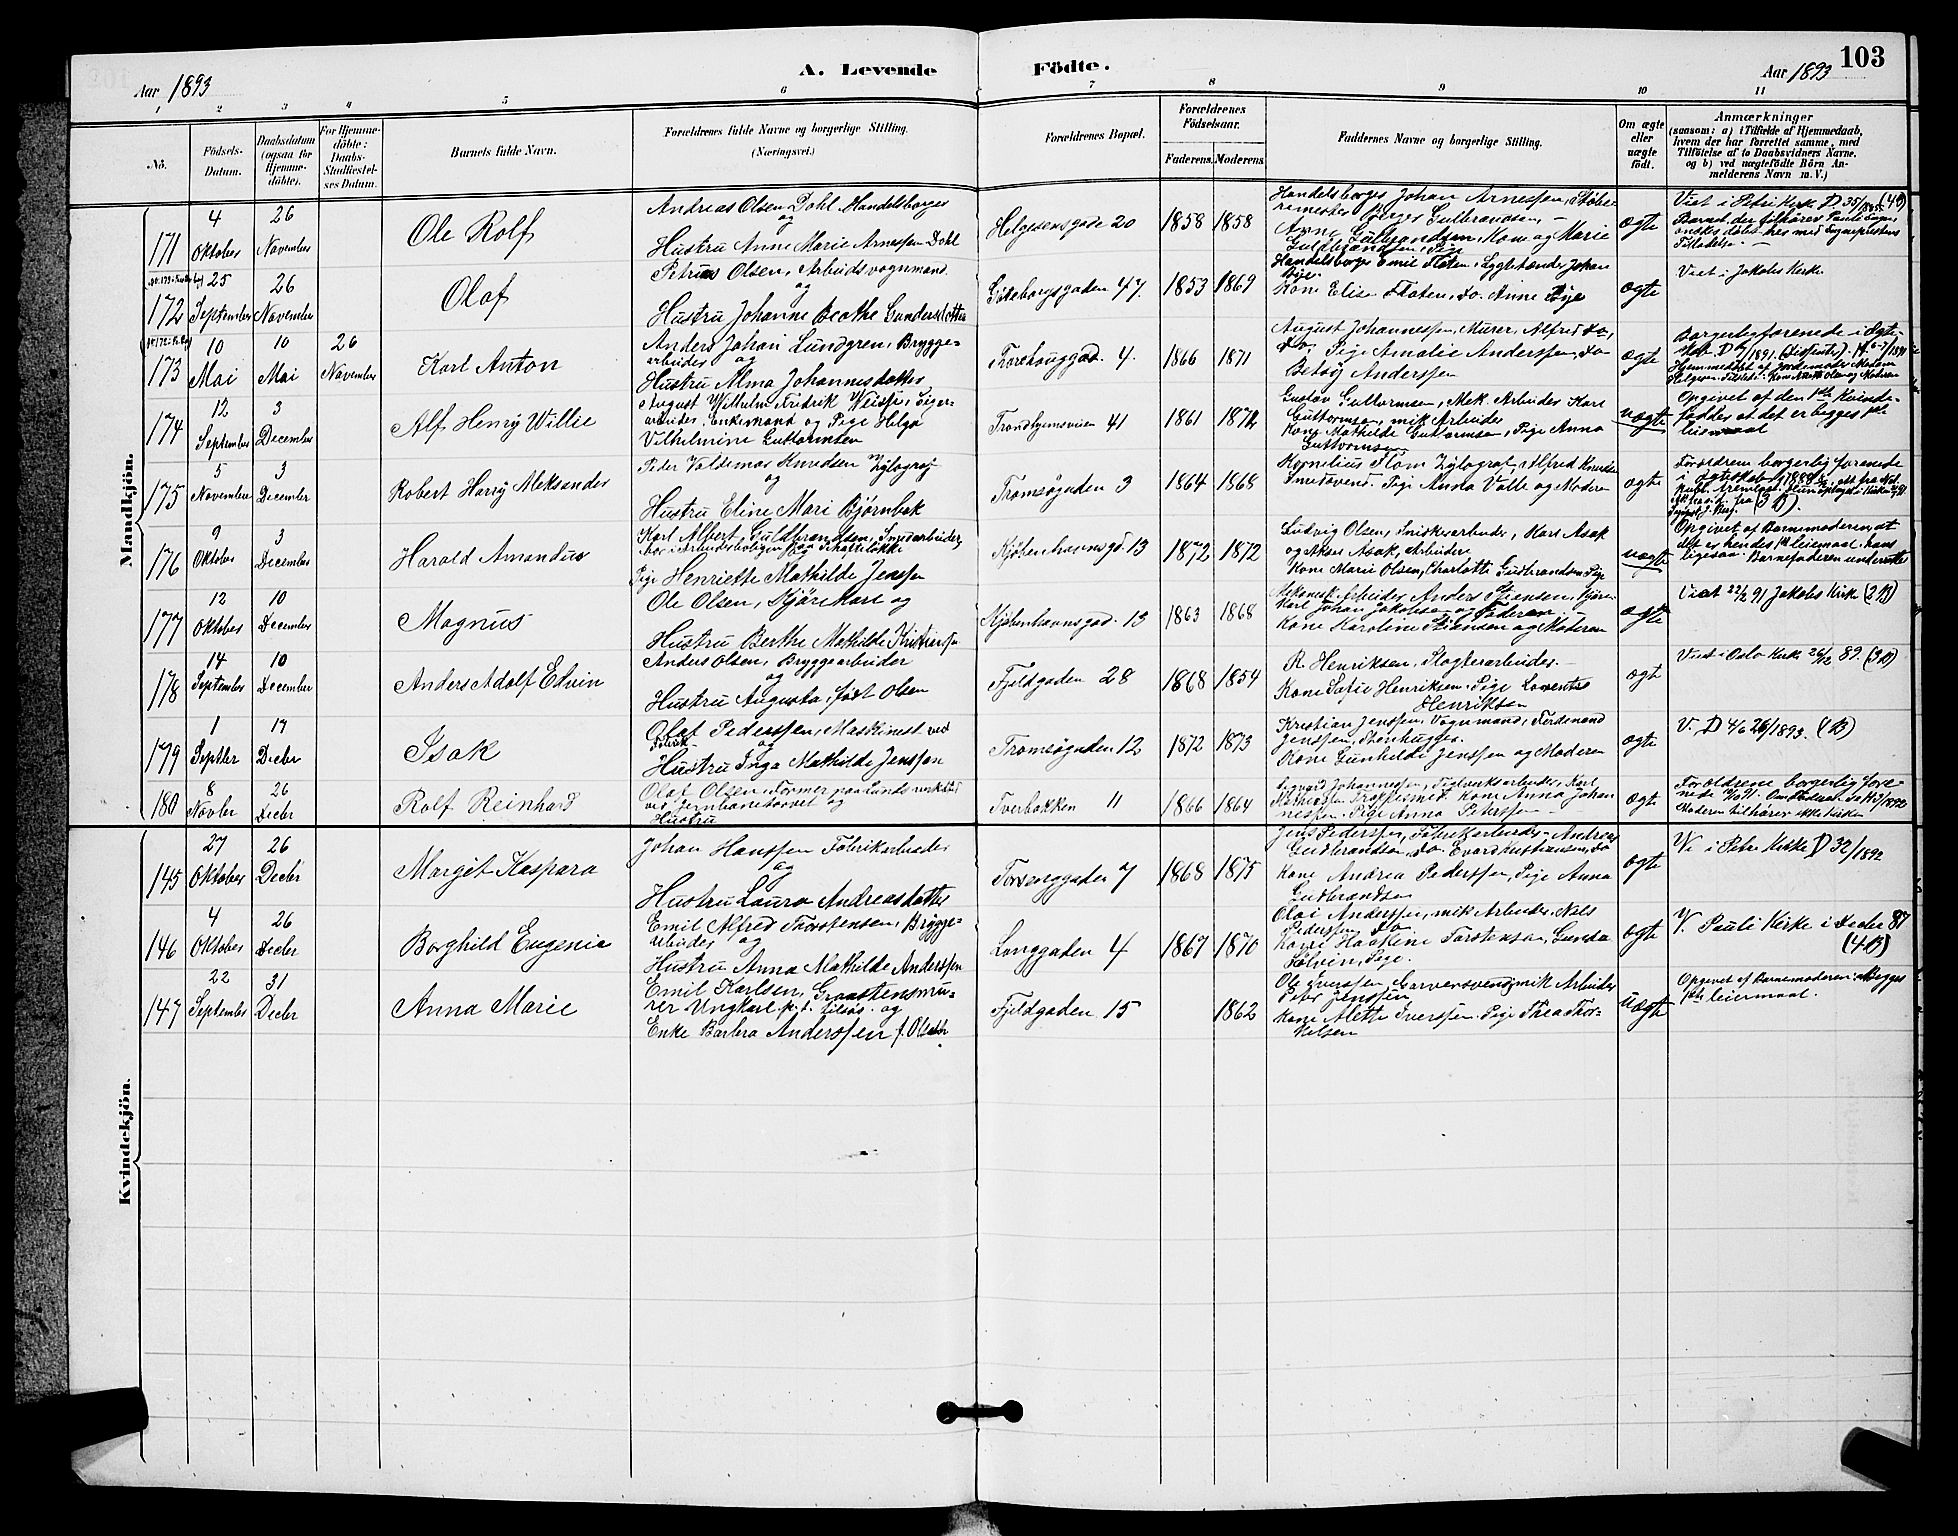 Aar 1893
A. Levende Födte.
Aar 1893
103
1 2 3 4 5 6 7 8 9 10 11
No.
Födsels-
Datum.
Daabsdatum
(ogsaa for
Hjemme-
döbte).
For Hjemme-
döbte:
Daabs-
Stadfæstel-
ses Datum.
Barnets fulde Navn.
Forældrenes fulde Navne og borgerlige Stilling.
(Næringsvei.)
Forældrenes Bopæl.
Forældrenes
Födselsaar.
Faderens. Moderens.
Faddernes Navne og borgerlige Stilling.
Om ægte
eller
uægte
födt.
Anmærkninger
(saasom: a) i Tilfælde af Hjemmedaab,
hvem der har forrettet samme, med
Tilföielse af to Daabsvidners Navne,
og b) ved uægtefödte Börn An-
melderens Navn m. V.)
Mandkjön.
171
4
Oktober
26
November
Ole Rolf
Andreas Olsen Dahl Handelsborger
og
Hustru Anne Marie Arnessen Dahl
Helgesensgade 20
1858 1858
Handelsborger Johan Arnessen, Støbe-
remester Børger Gulbrandsen,
Anne Gulbrandsen, Kone og Marie
Guldbrandsen, Pige
ægte
Viet i Petri Kirke D 35/1885 (4B)
172
25
September
26
November
Olaf
Petrus Olsen, Arbeidsvognmand
og
Hustru Johanne Beathe Gundersdotter
Gøteborgsgaden 47.
1853 1869
Handelsborger Emil Floten, Lygtetænder Johan
Bye.
Kone Elise Floten, do. Anne Bye
ægte
Viet i Jakobs Kirke
173
10
Mai
10
Mai
26
November
Karl Anton
Anders Johan Lundgren, Brygge-
arbeider og
Hustru Alma Johannesdotter
4.
1866 1871
August Johannessen, Murer, Alfred do,
do Pige Amalie Anderssen, do
Betsy Anderssen
ægte
Borgerlig forenede i Ægte-
174
12
September
3
December
Alf Henry Willie
August Wilhelm Fridrik Weisse, Sager-
arbeider, Enkemand og Pige Helga
Vilhelmine Guttormsen
Trondhjemsveien 41
1861 1872
Gustav Guttormsen, Mek. Arbeider Karl
Guttormsen, mek Arbeider
Kone Mathilde Guttormsen, Pige Anna
Guttormsen
uægte
Opgivet af den 1ste Kvinde-
fødder at det er begges 1ste
leiemaal
175
5
November
3
December
Robert Harry Aleksander
Peder Valdemar Knudsen Xylograf
og
Hustru Eline Mari Bjørnbak
Tromsøgaden 3
1864 1868
Kornelius Flom Xylograf, Alfred Knudsen
Smedsvend. Pige Anna Valle og Moderen
ægte
Forældrene borgerlig forenede
176
9
Oktober
3
December
Harald Amandus
Karl Albert Guldbrandsen, Smedarbeider,
Pige Henriette Mathilde Jenssen
Kjøbenhavnsgd. 13
1872 1872
Ludvig Olsen, Snikkerarbeider, Kars Asak
og Aksel Asak, arbeider
Kone Marie Olsen, Charlotte Gudbrandsen Pige
uægte
Opgivet af Barnemoderen at
det er hendes 1ste leiemaal, hans
ligesaa. Barnefaderen underrettet
177
12
Oktober
10
December
Magnus
Ole Olsen, Kjørekarl og
Hustru Berthe Mathilde Kristiansen
Kjøbenhavnsgad. 13
1863 1868
Mekanisk Arbeider Anders Stensen, Kjøre-
Karl Johan Jakobsen og Faderen
Kone Karoline Stensen og Moderen
ægte
Viet 22/2 91 Jakobs Kirke (2B)
178
14
September
10
December
Anders Adolf Edvin
Anders Olsen, Bryggearbeider
og
Hustru Augusta, født Olsen
Fjeldgaden 28
1868 1854
R. Henriksen, Slagterarbeider.
Kone Sofie Henriksen. Pige Lorentse
Henriksen
ægt
Viet i Oslo Kirke 26/12 89. (3B)
179
1
Septber
17
Decbr
Isak
Olaf Pederssen, Maskinest. ved
Fabrik og
Hustru Inga Mathilde Jenssen
Tromsøgaden 12
1872 1873
Kristian Jenssen, Vognmand, Ferdinand
Jenssen, Stenhugger
Kone Gunhilde Jenssen og Moderen
ægte
V. D 46 26/1893. (1B)
180
8
Novbr
26
Decbr
Rolf Reinhard
Olaf Olsen, Former paa Lunds værksted
ved Jernbanetorvet og
Hustru
Tverbakken 11
1866 1864
Sigvard Johannessen, Teglverksarbeider, Karl
Mathiassen Kone Anna Johan
nessen, Pige Anna Peterssen
ægte
Forældrene borgerlig fore-
Moderen tilhører ikke Kirken
Kvindekjön.
145
27
Oktober
26
Decbr
Margit Kaspara
Johan Hanssen Fabrikarbeider
og
Hustru Laura Andreasdotter
7
1868 1875
Jens Pederssen, Fabrikarbeider, Andreas
Gudbrandsen, do. Evard Kristiansen, do
Kone Andrea Pederssen, Pige Anna
Gudbrandsen
ægte
Vi i Petri Kirke D 32/1892
146
4
Oktober
26
Decbr
Borghild Eugenie
Emil Alfred Thorstensen, Brygge-
arbeider og
Hustru Anna Mathilde Anderssen
Langgaden 4
1867 1870
Olai Anderssen, mek Arbeider, Nels
Pederssen do
Kone Torstensen, Gunda
Sølvin, Pige.
ægte
V. Pauli Kirke i Decbr 87
(4B)
147
22
September
31
Decbr
Anna Marie
Emil Karlsen, Graastensmu-
rer Ungkarl p.t. og
Enke Barbra Anderssen f. Olsdtr.
Fjeldgaden 15
1862
Ole Iverssen, Garversvend, mek Arbeider
Peter Jenssen
Kone Alette Iverssen. Pige Thea Thor-
kelsen
uægte
Opgivet af Barnemoderen: Begges
1ste leiermaal.